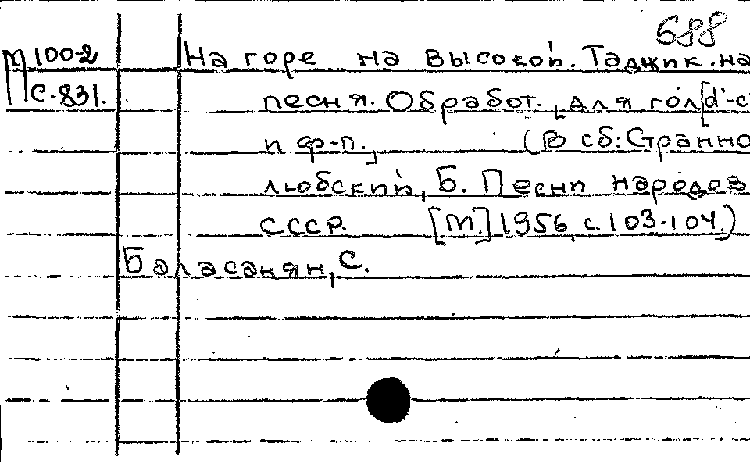 688
М 100-2 На горе на высокой. Таджик. на
С-831. песня. Обработ. [для гол[d'-c
и ф-п.] (В сб: Странно
любский, Б. Песни народов
СССР. [М.] 1956, с. 103-104.)
Баласанян, С.